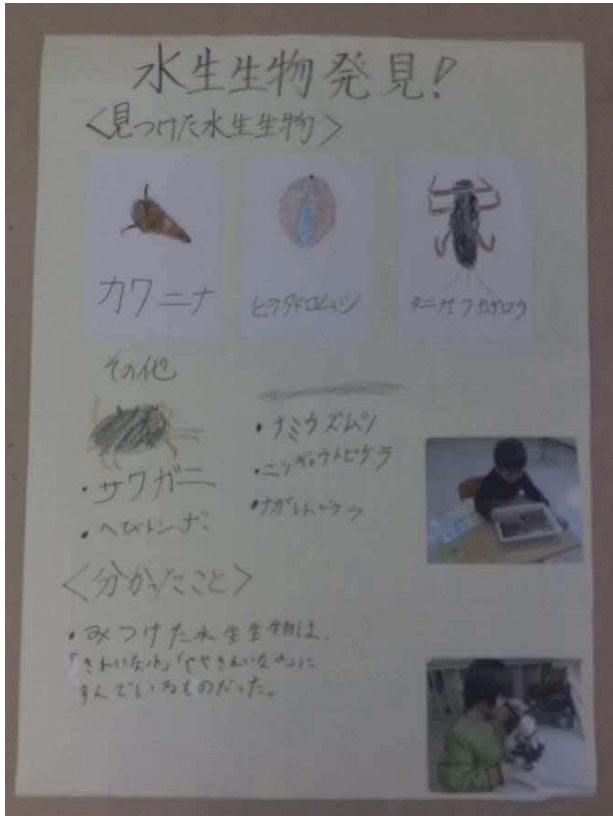 水生生物発見!
<見つけた水生生物>
カワニナ
ヒラタドロムシ
タニガワカゲロウ
その他
・サワガニ
・へびトンボ
・ナミウズムシ
・ニンギョウトビケラ
・ナガレトビケラ
<分かったこと>
・みつけた水生生物は、
「きれいな水」「ややきれいな水」に
すんでいるものだった。